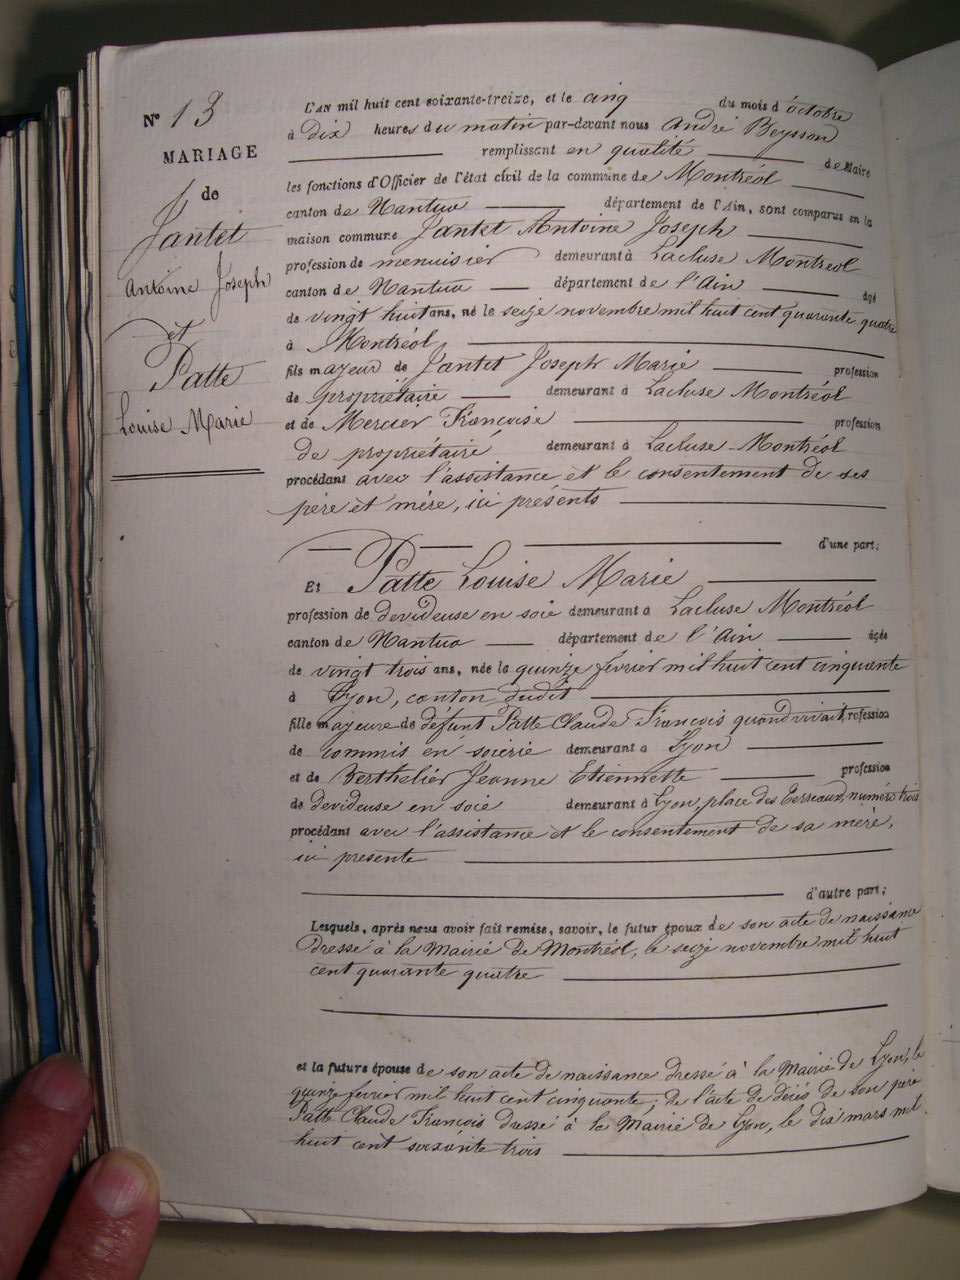 N° 13
MARIAGE
de
Jantet
Antoine Joseph
et
Patte
Louise Marie
L'AN mil huit cent soixante-treize, et le cinq du mois d'octobre
à dix heures du matin par-devant nous André Beysson
remplissant en qualité de Maire
les fonctions d'Officier de l'état civil de la commune de Montréal
canton de Nantua département de l'Ain, sont comparus en la
maison commune Jantet Antoine Joseph
profession de menuisier demeurant à Lacluse Montréal
canton de Nantua département de l'Ain âgé
de vingt huit ans, né le seize novembre mil huit cent quarante quatre
à Montréal
fils majeur de Jantet Joseph Marie profession
de propriétaire demeurant à Lacluse Montréal
et de Mercier Françoise profession
de propriétaire demeurant à Lacluse Montréal
procédant avec l'assistance et le consentement de ses
père et mère, ici présents
d'une part;
Et Patte Louise Marie
profession de devideuse en soie demeurant à Lacluse Montréal
canton de Nantua département de l'Ain âgée
de vingt trois ans, née le quinze février mil huit cent cinquante
à Lyon, canton dudit
fille majeure de défunt Patte Claude François quand vivait, profession
de commis en soierie demeurant à Lyon
et de Berthelier Jeanne Etiennette profession
de devideuse en soie demeurant à Lyon, place des Terreaux, numéro trois
procédant avec l'assistance et le consentement de sa mère,
ici presente
d'autre part;
Lesquels, après nous avoir fait remise, savoir, le futur époux de son acte de naissance
dressé à la Mairie de Montréal, le seize novembre mil huit
cent quarante quatre
et la future épouse de son acte de naissance dressé à la Mairie de Lyon, le
quinze février mil huit cent cinquante; de l'acte de décès de son père
Patte Claude François dressé à la Mairie de Lyon, le dix mars mil
huit cent soixante trois